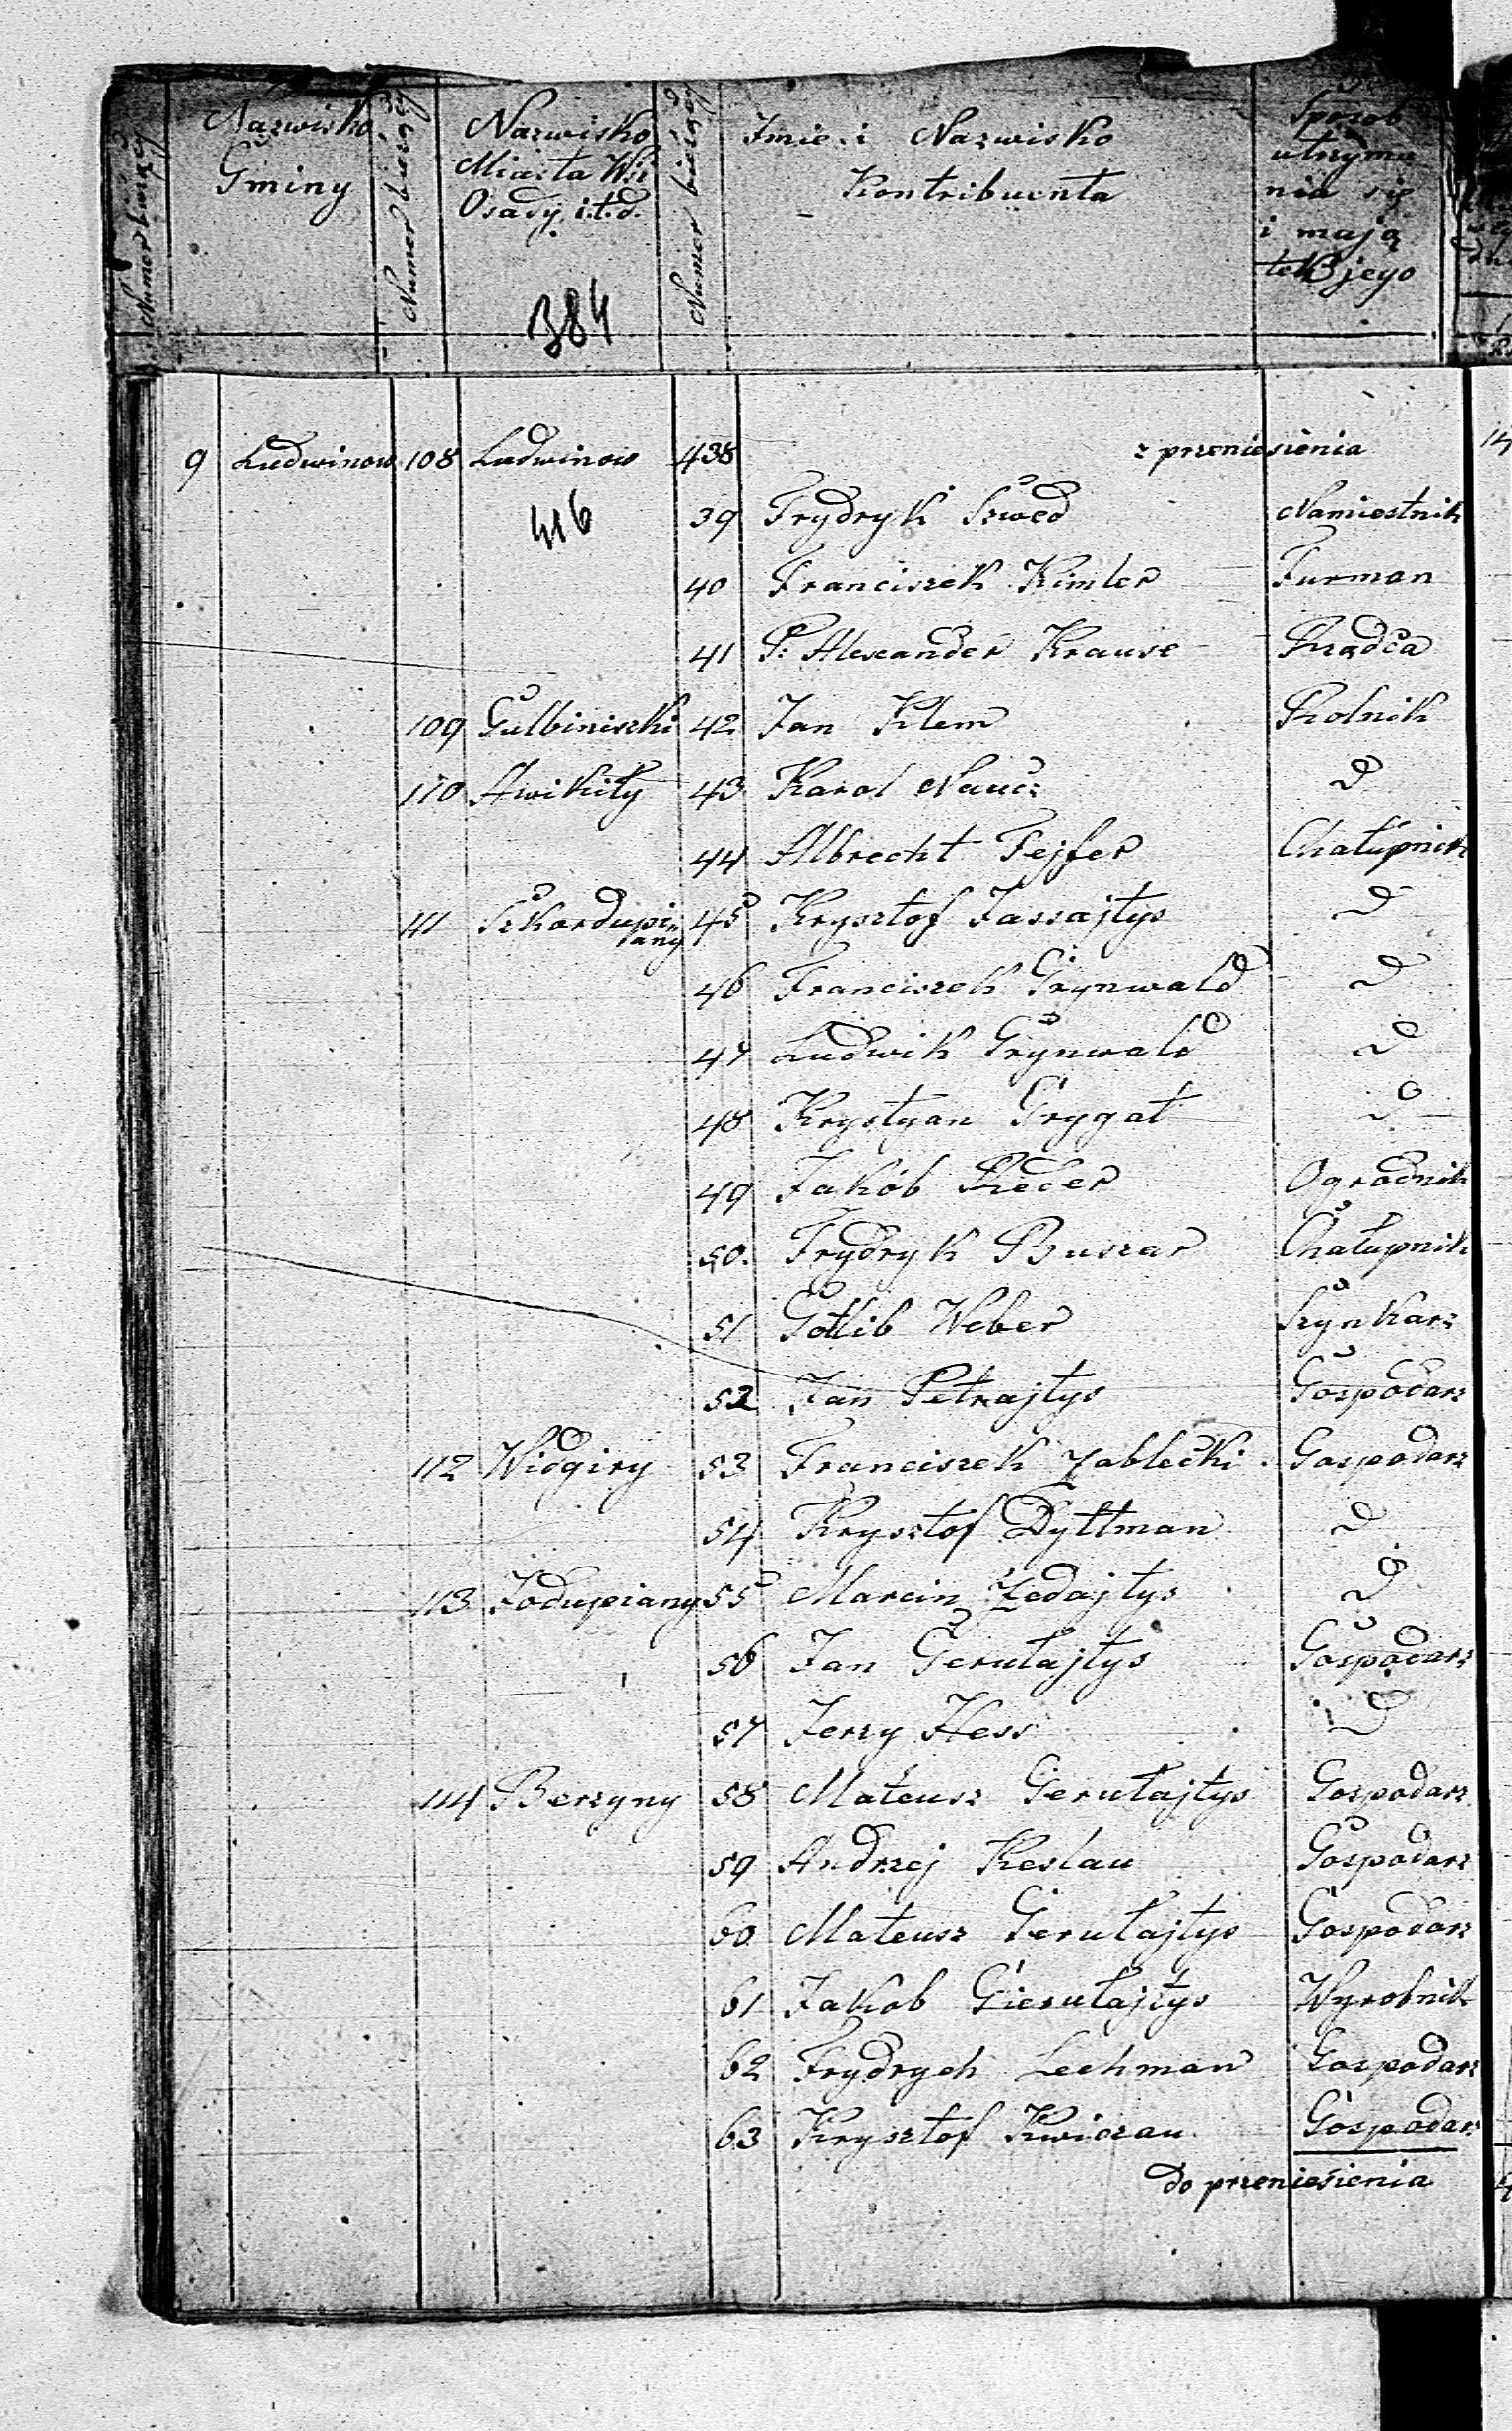 Numer bieżący
Nazwisko Gminy
Numer bieżący
Nazwisko Miasta Wsi Osady i.t.d.
Numer bieżący
Imie i Nazwisko Kontribuenta
Sposob utrzyma nia się i mają tek jego
384
9 Ludwinow 108 Ludwinow 438 z przeniesienia
416
39 Frydryk Szwed Namiestnik
40 Franciszek Kimler Furman
41 P: Alexander Krause Rządca
109 Gulbiniszki 42 Jan Klem Rolnik
110 Awikiły 43 Karol Naucz d
44 Albrecht Fejfer Chałupnik
111 Szkordupiany 45 Krysztof Jassajtys d
46 Franciszek Grynwald d
47 Ludwik Grynwald d
48 Krystyan Grygat d
49 Jakób Reder Ogrodnik
50. Frydryk Buszar Chałupnik
51 Gotlib Weber Szynkarz
52 Jan Petrajtys Gospodarz
112 Widgiry 53 Franciszek Zablecki Gospodarz
54 Krysztof Dyttman d
113 Jodupiany 55 Marcin Zedajtys d
56 Jan Gerułajtys Gospodarz
57 Jerzy Hess d
114 Berzyny 58 Mateusz Gerułajtys Gospodarz
59 Andrzej Keslau Gospodarz
60 Mateusz Gerułajtys Gospodarz
61 Jakob Gierułajtys Wyrobnik
62 Frydrych Lechman Gospodarz
63 Krysztof Kwiczau Gospodarz
do przeniesienia